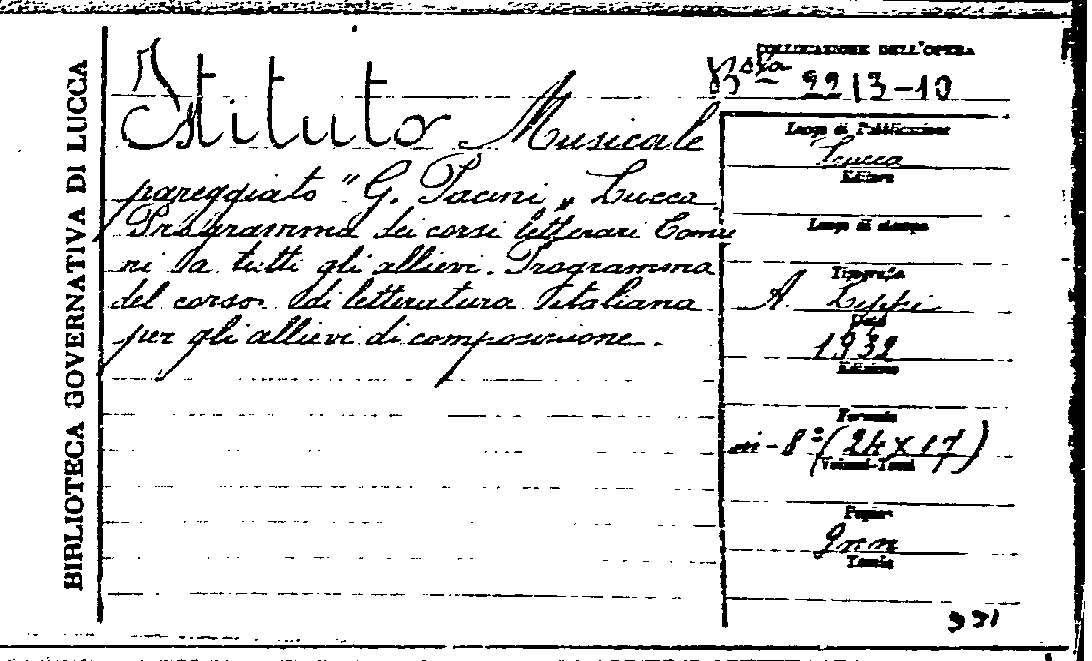 BIBLIOTECA GOVERNATIVA DI LUCCA
Istituto Musicale
pareggiato "G. Pacini" Lucca.
Programma dei corsi letterari Comu
ni a tutti gli allievi. Programma
del corso di letteratura italiana
per gli allievi di composizione.
COLLOCAZIONE DELL'OPERA
Bsta 2213-10
Luogo di Pubblicazione
Lucca
Editore
Luogo di stampa
Tipografia
A. Lippi
1932
Edizione
Formato
in-8º (24x17)
Volumi-Tomi
Pagine
Tavole
331